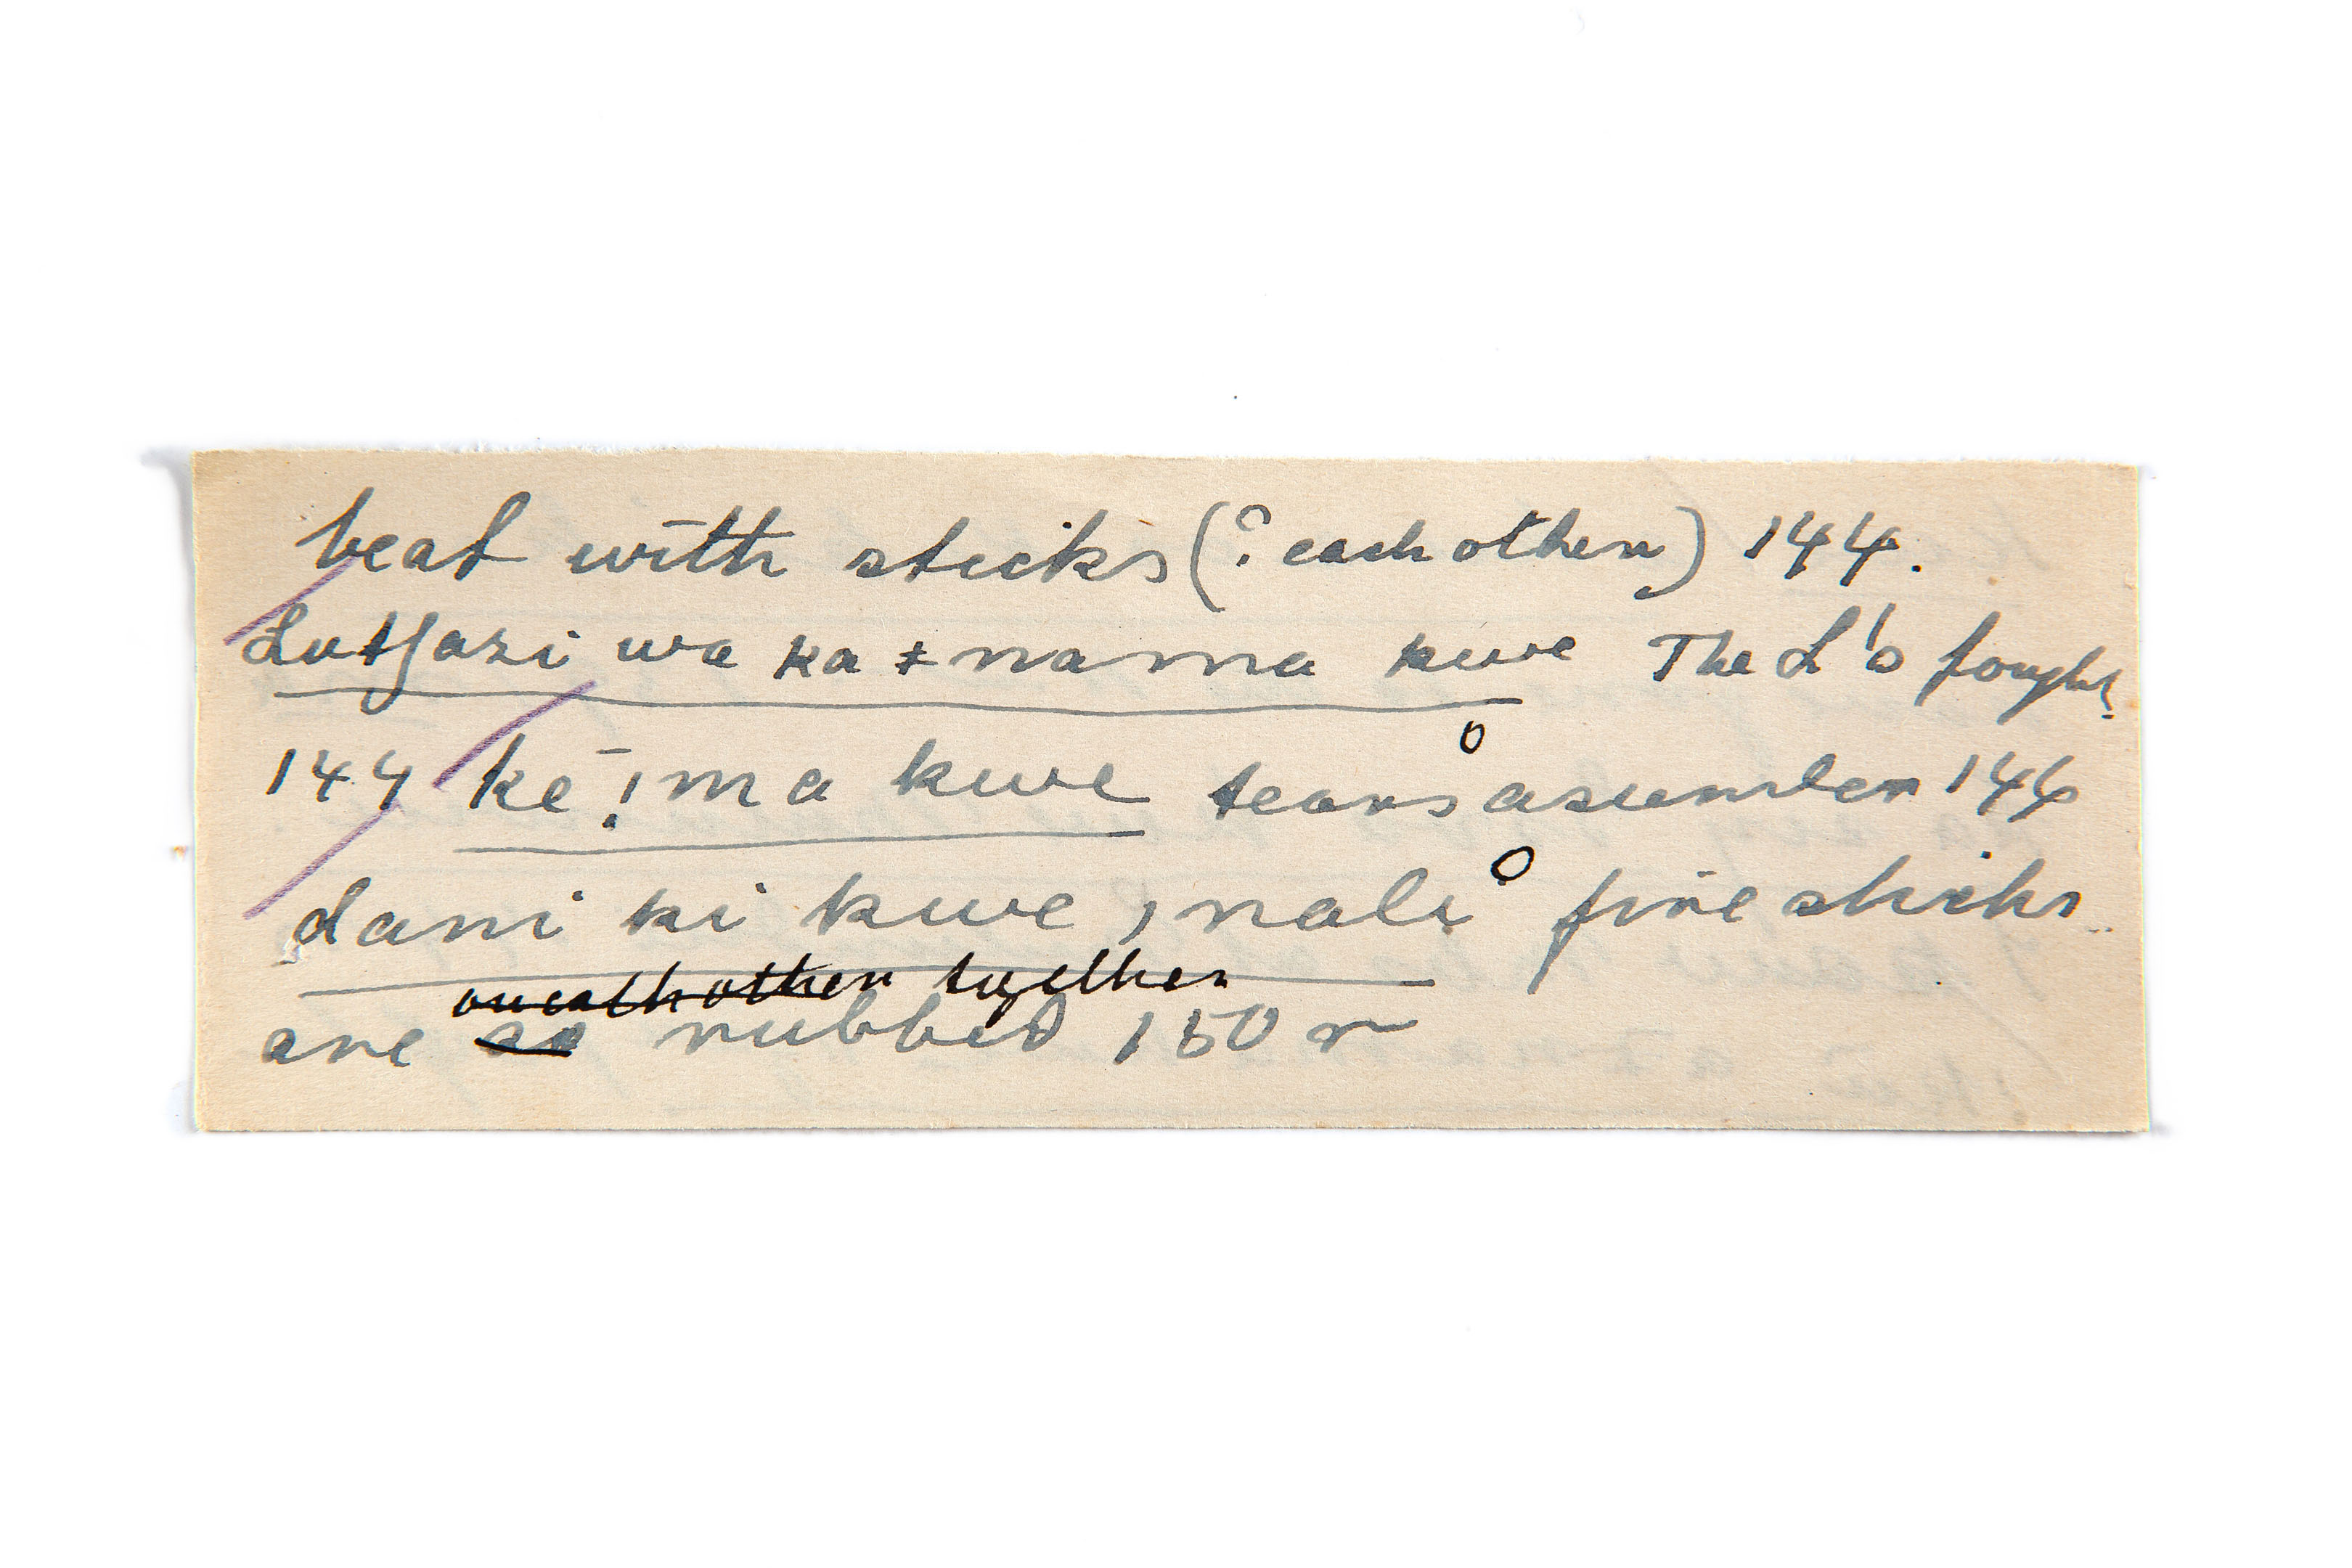 beat with sticks (? each other) 144.
Lutʃazi wa ka ǂ nama kwe The L's fought.
144 kē !ma kwe tears asunder 146
dani ki kwe, nali fire sticks
on each other together
are so rubbed 150 r